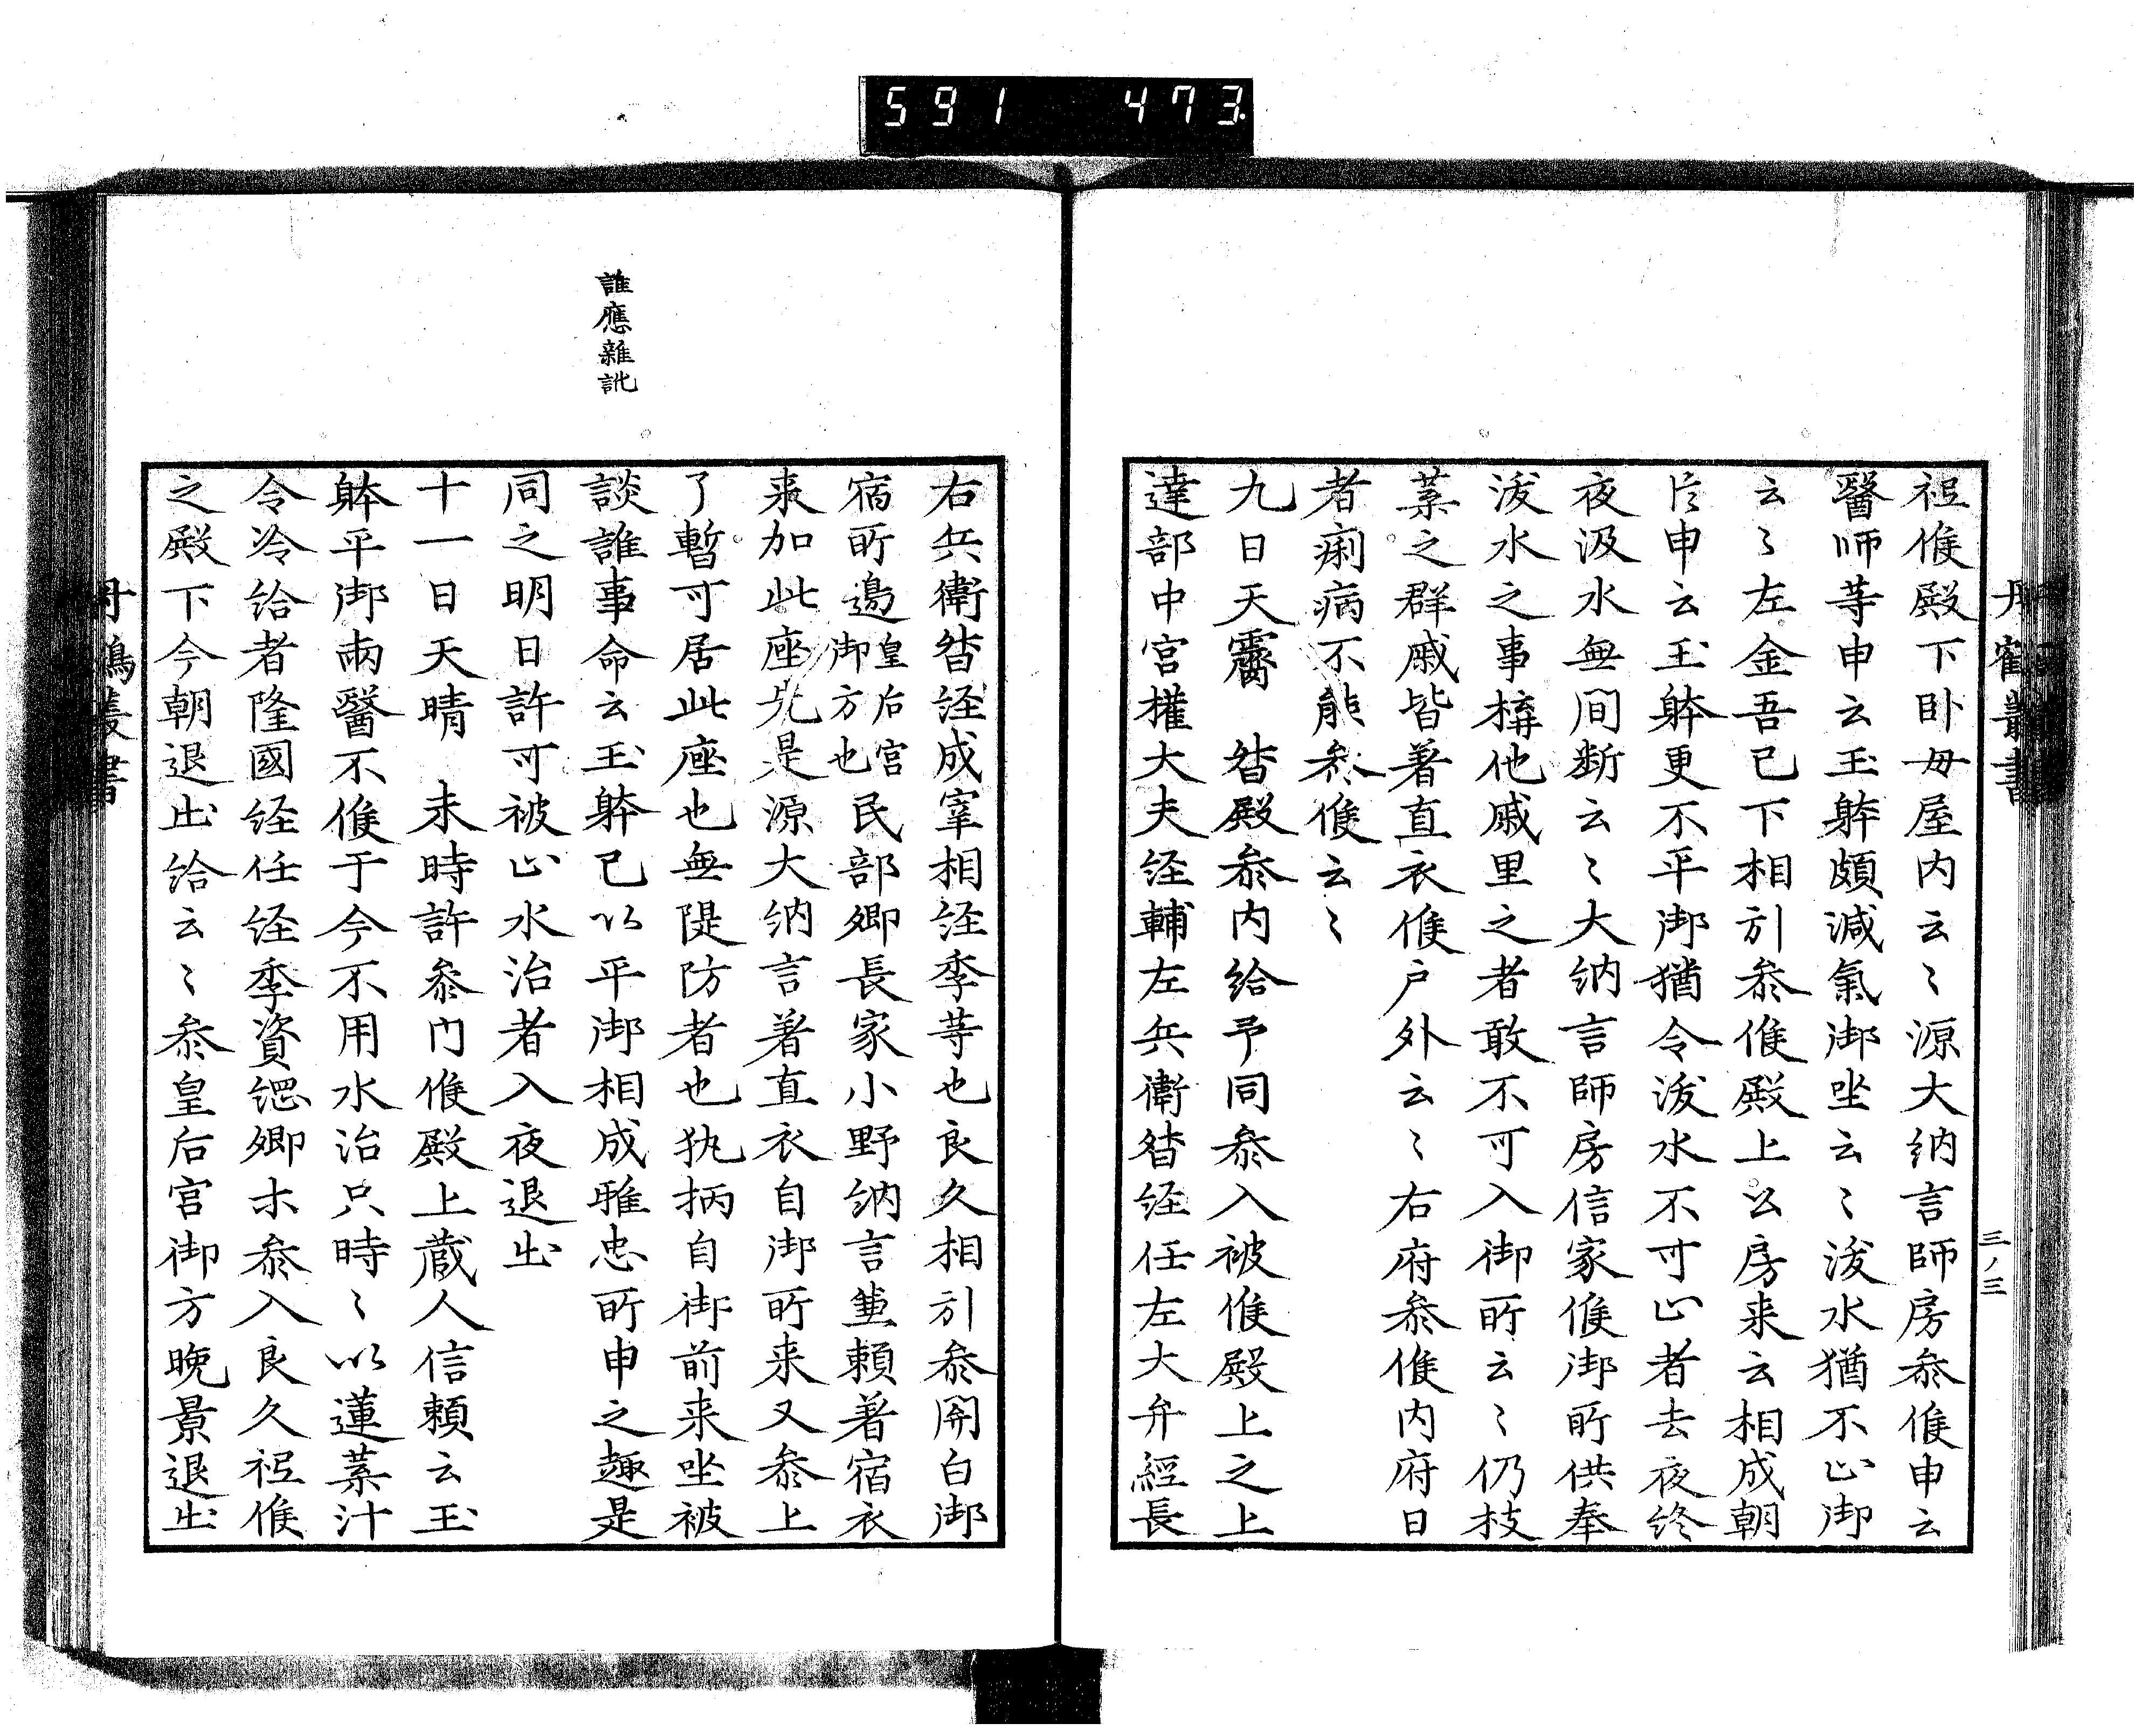 591 473
丹鶴叢書
三ノ三
祗候殿下卧母屋内云〻源大納言師房参候申云
醫師等申云玉躰頗減氣御坐云〻沃水猶不止御
云〻左金吾已下相引参候殿上公房来云相成朝
臣申云玉躰更不平御猶令沃水不可止者去夜終
夜汲水無間断云〻大納言師房信家候御所供奉
沃水之事棄他戚里之者敢不可入御所云〻仍枝
葉之群戚皆著直衣候戸外云〻右府参候内府日
者痢病不能参候云〻
九日天霽 督殿参内給予同参入被候殿上之上
達部中宮權大夫経輔左兵衛督経任左大弁經長
右兵衛督経成宰相経季等也良久相引参関白御
宿所邊皇后宮御方也民部卿長家小野納言兼頼著宿衣
来加此座先是源大納言著直衣自御所来又参上
了暫可居此座也無隄防者也執柄自御前来坐被
談誰事命云玉躰已以平御相成雅忠所申之趣是
同之明日許可被止水治者入夜退出
十一日天晴 未時許参内候殿上蔵人信頼云玉
躰平御両醫不候于今不用水治只時〻以蓮葉汁
令冷給者隆國経任経季資綱卿等参入良久祗候
之殿下今朝退出給云〻参皇后宮御方晩景退出
誰應雑訛
丹鶴叢書